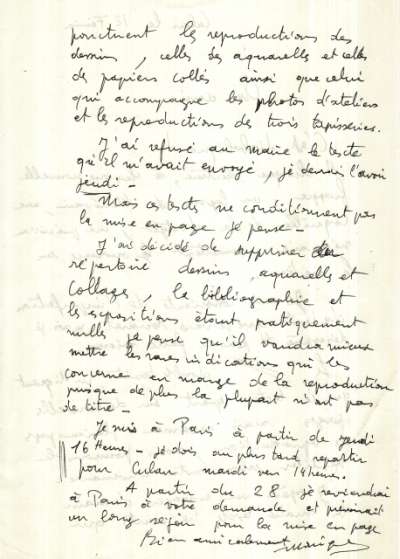 ponctuent les reproductions des
dessins, celles des aquarelles et celles
des papiers collés ainsi que celui
qui accompagne les photos d'ateliers
et les reproductions des trois tapisseries.
J'ai refusé au maire le texte
qu'il m'avait envoyé, je devrais l'avoir
jeudi -
Mais ces textes ne conditionnent pas
la mise en page je pense -
J'ai décidé de supprimer
répertoire dessins, aquarelles et
collages, la bibliographie et
les expositions étant pratiquement
nulles je pense qu'il vaudra mieux
mettre les rares indications qui les
concerne en marge de la reproduction
puisque de plus la plupart n'ont pas
de titre -
Je suis à Paris à partir de jeudi
16 Heures - je dois au plus tard repartir
pour Culan mardi vers 14 heures.
A partir du 28 je reviendrai
à Paris à votre demande et prévoirait
un long séjour pour la mise en page
Bien amicalement Monique